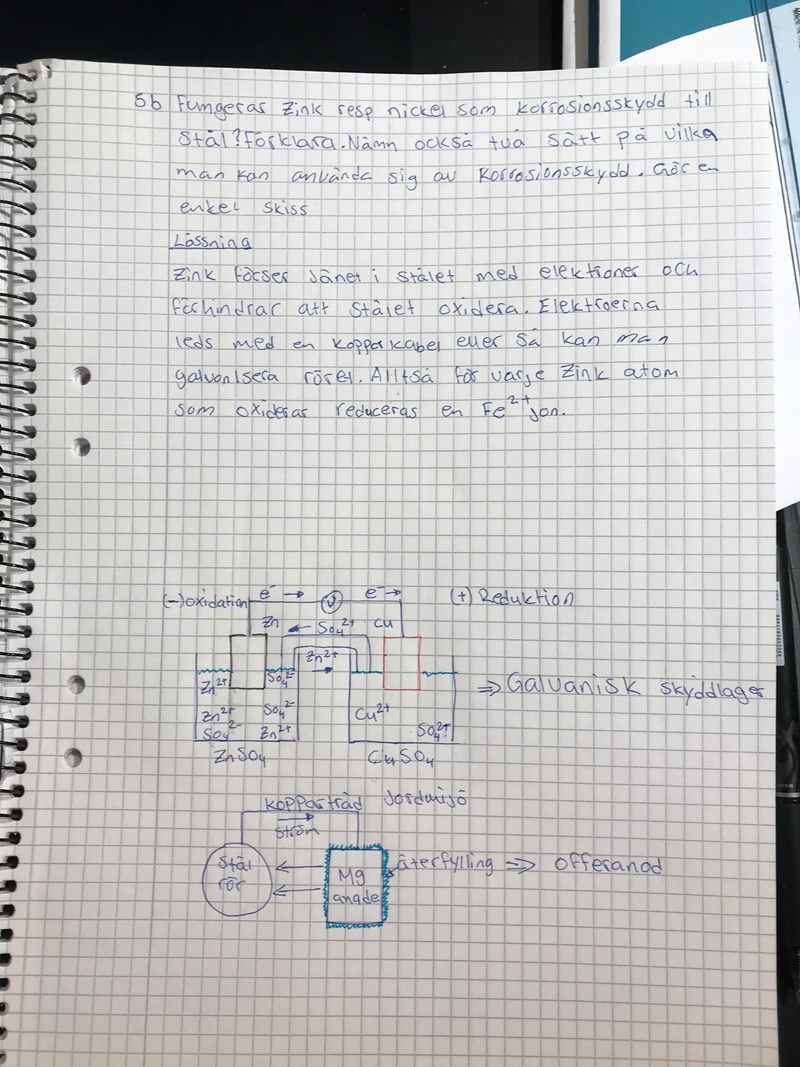 5b Fungerar zink resp nickel som korrosionsskydd till
stål? Förklara. Nämn också två sätt på vilka
man kan använda sig av korrosionsskydd. Gör en
enkel skiss
Lössning
Zink förser jänet i stålet med elektioner och
förhindrar att stålet oxidera. Elektroerna
leds med en kopparkabel eller så kan man
galvonisera röret. Alltså för varje zink atom
som oxiderar reduceras en Fe²⁺ jon.
(-) oxidation e⁻ → V e⁻ → (+) Reduktion
Zn ← SO₄²⁺ Cu
Zn²⁺ →
Zn²⁺ SO₄²⁻
⇒ Galvanisk skyddlager
Zn²⁺ SO₄²⁻ Cu²⁺
SO₄²⁻ Zn²⁺ SO₄²⁺
ZnSO₄ CuSO₄
koppartråd Jordmijö
→
ström
Stål rör
Mg anade
återfylling ⇒ offeranod